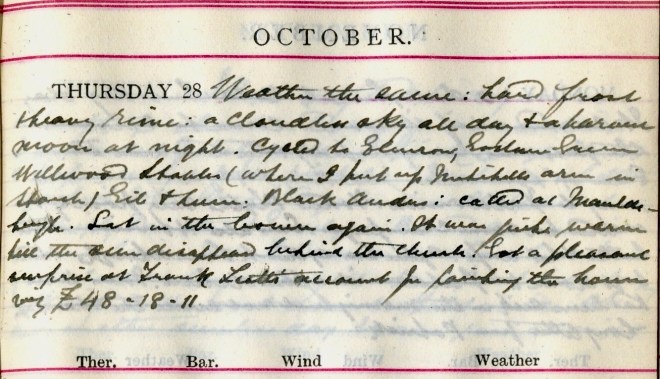 OCTOBER.
THURSDAY 28 Weather the same: hard frost
& heavy rime: a cloudless sky all day & a harvest
moon at night. Cycled to
Wellwood Stables (where I put up Mitchells arm in
Black Andus: called at
Sat in the again. It was quite warm
till the sun disappeared behind the church. Got a pleasant
surprise at Frank account for painting the house
viz £48-18-11
Ther. Bar. Wind Weather